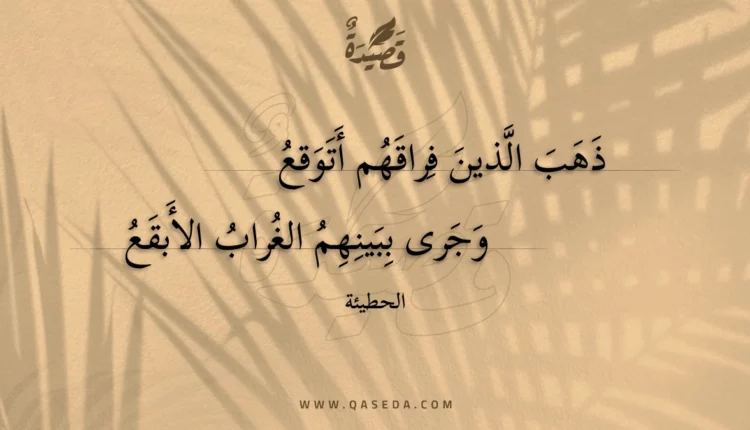 قَصِيْدَةٌ
ذَهَبَ الَّذينَ فِراقَهُم أَتَوَقعُ
وَجَرى بِبَينِهِمُ الغُرابُ الأَبقَعُ
الحطيئة
WWW.QASEDA.COM